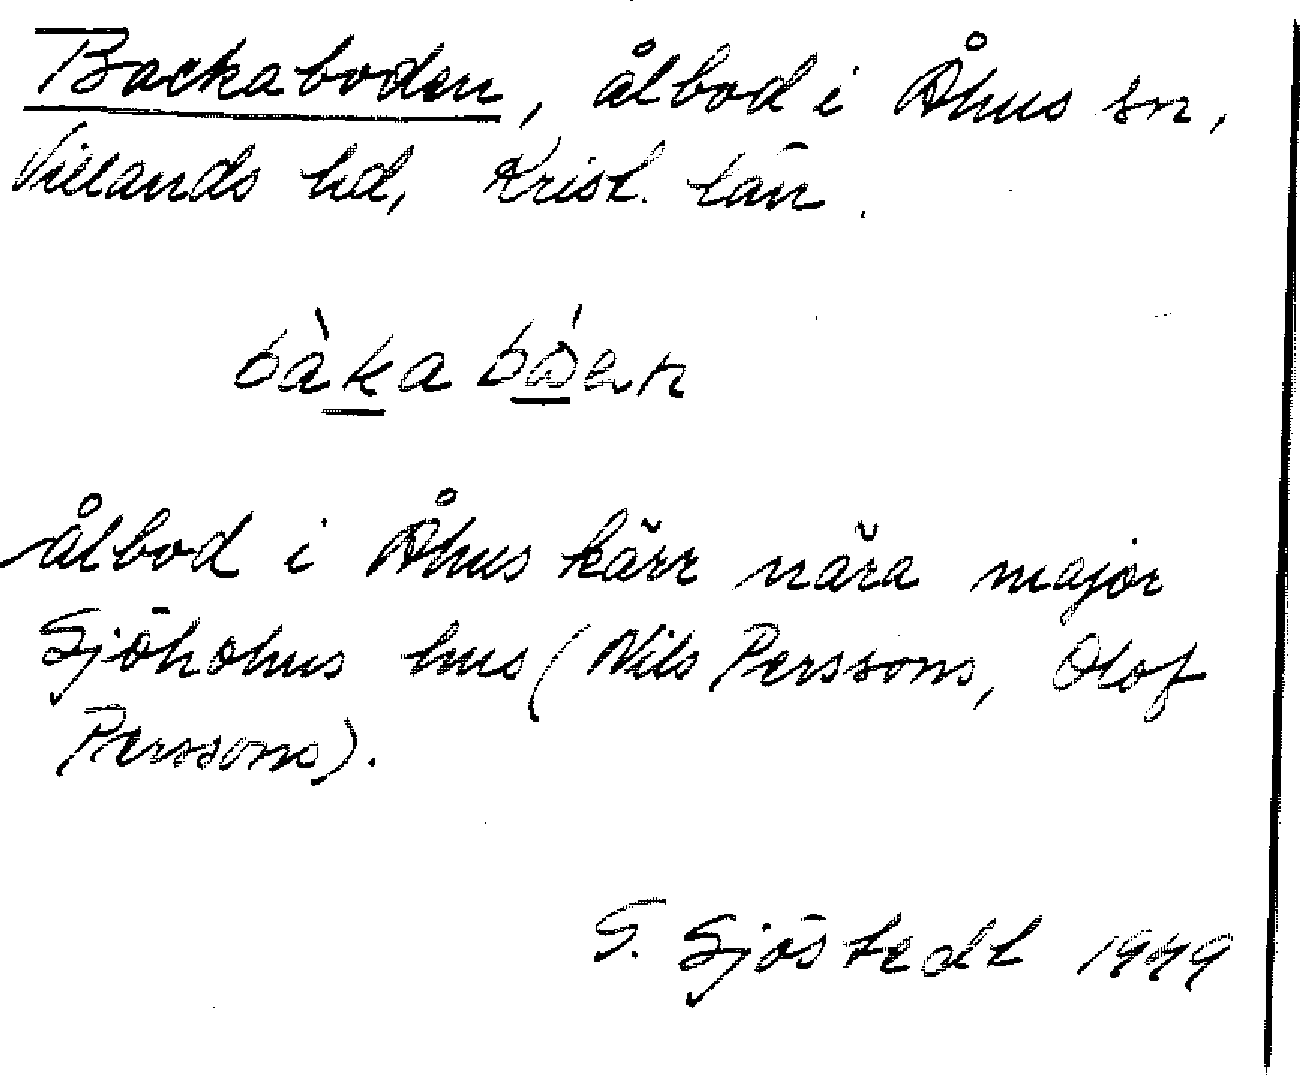 Backaboden, ålbod i Åhus sn,
Villands hd, Krist. län.
bàka bó̀en
Ålbod i Åhus kärr nära major
Sjöholms hus (Nils Perssons, Olof
Perssons).
G. Sjöstedt 1949